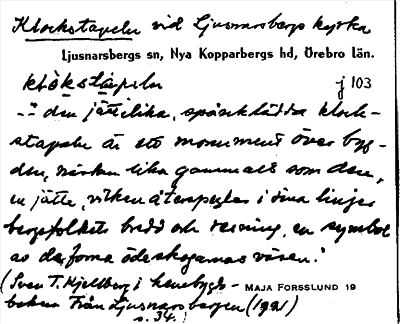 Klockstapeln vid Ljusnarsbergs kyrka
Ljusnarsbergs sn, Nya Kopparbergs hd, Örebro län.
klókstàpeln j 103
-"- den jättelika, spånklädda klock-
stapeln är ett monument över byg-
den, nästan lika gammalt som den,
en jätte, vilken återspeglar i sina linjer
bergsfolkets bredd och resning, en symbol
av de forna ödeskogarnas väsen."
(Sven T. Kjellberg i hembygds-
MAJA FORSSLUND 19
boken Från Ljusnarsbergen (1921)
s. 34.)